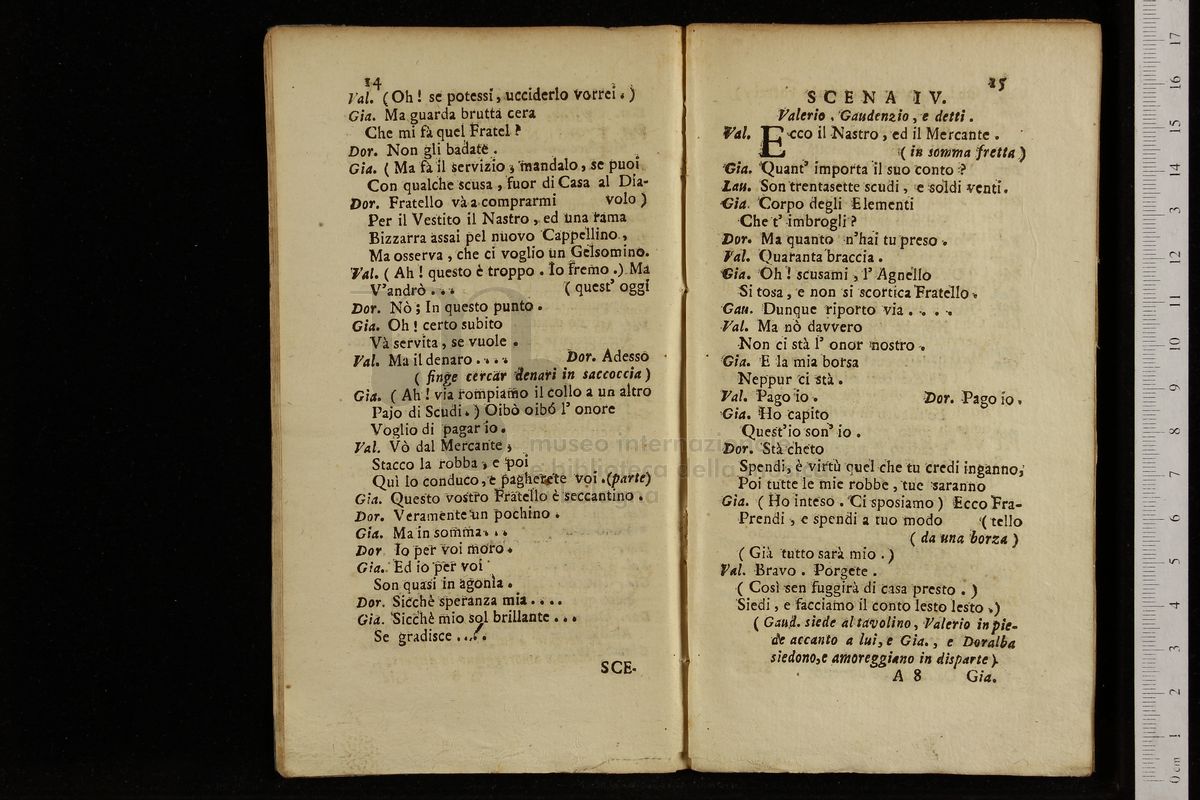 14
Val. (Oh! se potessi, ucciderlo vorrei.)
Gia. Ma guarda brutta cera
Che mi fà quel Fratel?
Dor. Non gli badate.
Gia. (Ma fà il servizio, mandalo, se puoi
Con qualche scusa, fuor di Casa al Dia-
Dor. Fratello và a comprarmi volo)
Per il Vestito il Nastro, ed una rama
Bizzarra assai pel nuovo Cappellino,
Ma osserva, che ci voglio un Gelsomino.
Val. (Ah! questo è troppo. Io fremo.) Ma
V'andrò... (quest' oggi
Dor. Nò; In questo punto.
Gia. Oh! certo subito
Và servita, se vuole.
Val. Ma il denaro.... Dor. Adesso
(finge cercar denari in saccoccia)
Gia. (Ah! via rompiamo il collo a un altro
Pajo di Scudi.) Oibò oibó l' onore
Voglio di pagar io.
Val. Vò dal Mercante,
Stacco la robba, e poi
Quì lo conduco, e pagherete voi.(parte)
Gia. Questo vostro Fratello è seccantino.
Dor. Veramente un pochino.
Gia. Ma in somma...
Dor. Io per voi moro.
Gia. Ed io per voi
Son quasi in agonìa.
Dor. Sicchè speranza mia....
Gia. Sicchè mio sol brillante...
Se gradisce....
SCE-
15
SCENA IV.
Valerio, Gaudenzio, e detti.
Val. Ecco il Nastro, ed il Mercante.
(in somma fretta)
Gia. Quant' importa il suo conto?
Lau. Son trentasette scudi, e soldi venti.
Gia. Corpo degli Elementi
Che t' imbrogli?
Dor. Ma quanto n'hai tu preso.
Val. Quaranta braccia.
Gia. Oh! scusami, l' Agnello
Si tosa, e non si scortica Fratello.
Gau. Dunque riporto via....
Val. Ma nò davvero
Non ci stà l' onor nostro.
Gia. E la mia borsa
Neppur ci stà.
Val. Pago io. Dor. Pago io.
Gia. Ho capito
Quest'io son' io.
Dor. Stà cheto
Spendi, è virtù quel che tu credi inganno,
Poi tutte le mie robbe, tue saranno
Gia. (Ho inteso. Ci sposiamo) Ecco Fra-
Prendi, e spendi a tuo modo (tello
(da una borza)
(Già tutto sarà mio.)
Val. Bravo. Porgete.
(Così sen fuggirà di casa presto.)
Siedi, e facciamo il conto lesto lesto.)
(Gaud. siede al tavolino, Valerio in pie-
de accanto a lui, e Gia., e Doralba
siedono, e amoreggiano in disparte)
A 8 Gia.